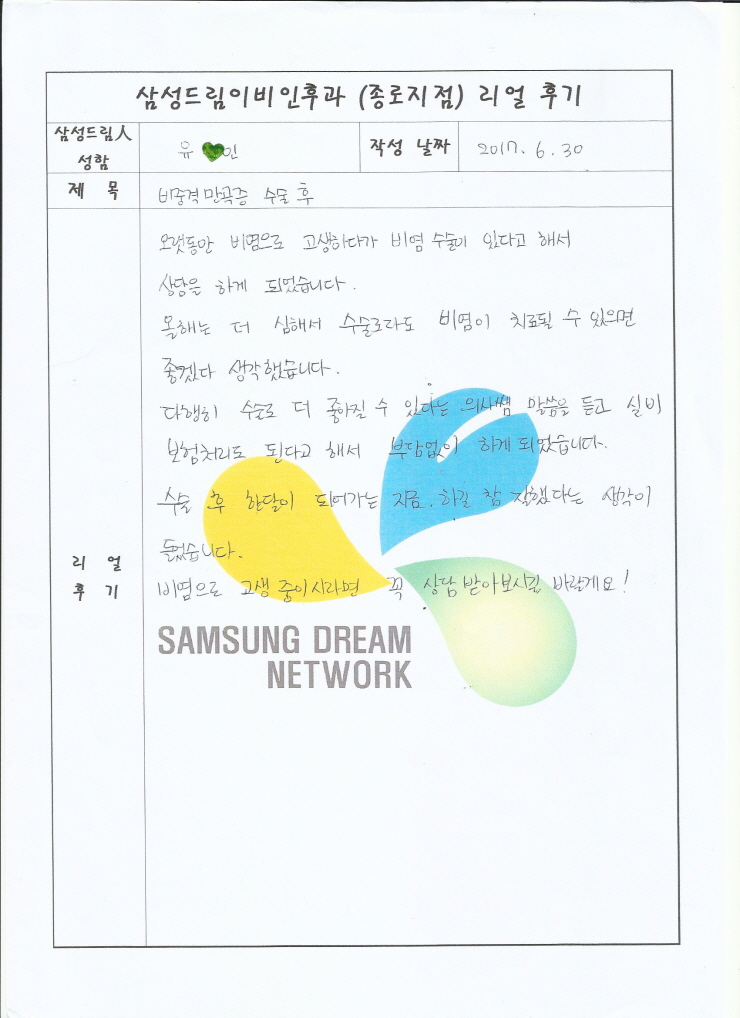 삼성드림이비인후과 (종로지점) 리얼 후기
삼성드림人 성함
유 인
작성 날짜
2017. 6. 30
제 목
비중격만곡증 수술 후
리 얼 후 기
오랫동안 비염으로 고생하다가 비염 수술이 있다고 해서
상담을 하게 되었습니다.
올해는 더 심해서 수술로라도 비염이 치료될 수 있으면
좋겠다 생각했습니다.
다행히 수술로 더 좋아질 수 있다는 의사쌤 말씀을 듣고 실비
보험처리도 된다고 해서 부담없이 하게 되었습니다.
수술 후 한달이 되어가는 지금. 하길 참 잘했다는 생각이
들었습니다.
비염으로 고생 중이시라면 꼭 상담 받아보시길 바랄게요!
SAMSUNG DREAM
NETWORK